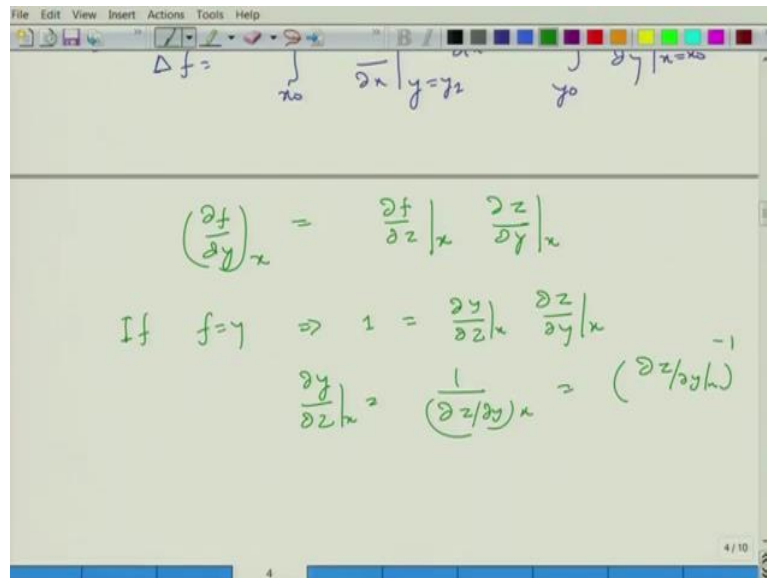 File Edit View Insert Actions Tools Help
Δf = ∫ x₀ ∂x |y=y₁ ∫ y₀ ∂y |x=x₀
(∂f/∂y)ₓ = ∂f/∂z |x ∂z/∂y |x
If f=y ⇒ 1 = ∂y/∂z |x ∂z/∂y |x
∂y/∂z |x = 1/(∂z/∂y)x = (∂z/∂y|x)⁻¹
4/10
4